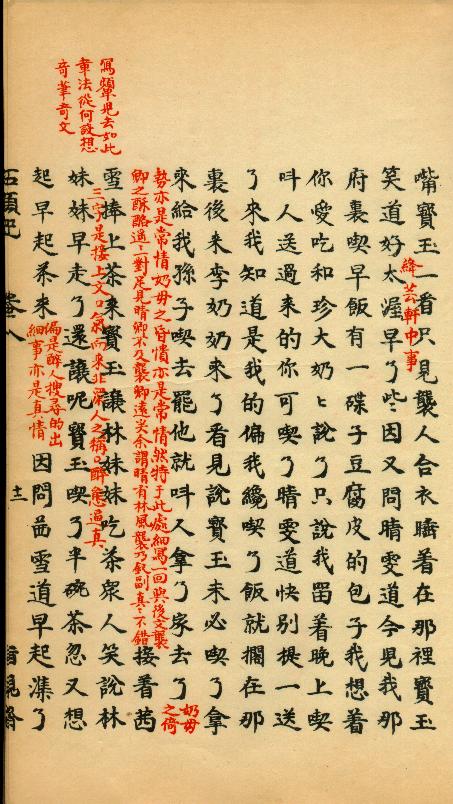 嘴寳玉一看只見襲人合衣睡着在那裡寳玉
笑道好太渥早了些因又問晴雯道今見我那
絳芸軒中事
府裏喫早飯有一碟子豆腐皮的包子我想着
你愛吃和珍大奶奶說了只說我留着晚上喫
呌人送過來的你可喫了晴雯道快別提一送
了來我知道是我的偏我纔喫了飯就擱在那
裏後來李奶奶來了看見說寳玉未必喫了拿
來給我孫子喫去罷他就呌人拿了家去了
奶母之倚
勢亦是常情奶母之昏憒亦是常情然特于此處細寫一回與後文襲
卿之酥酪遥遥一對足見晴卿不及襲卿遠矣余謂晴有林風襲乃釵副真真不錯
接着茜
雪捧上茶來寳玉讓林妹妹吃茶衆人笑說林
三字是接上文口氣而來非衆人之稱醉態逼真
妹妹早走了還讓呢寳玉喫了半碗茶忽又想
起早起茶來
偏是醉人搜尋的出
細事亦是真情
因問茜雪道早起漼了
寫顰兒去如此
章法從何設想
奇筆奇文
石頭記 卷八 十二 脂硯齋